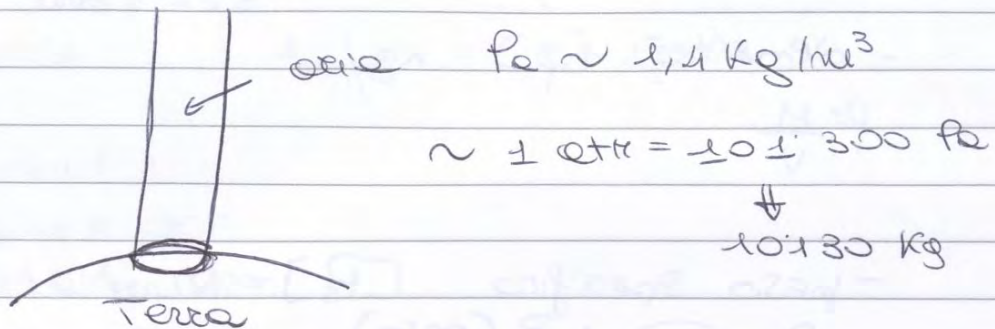 aria ρa ~ 1,4 Kg/m³
~ 1 atm = 101'300 Pa
⇓
10'130 Kg
Terra